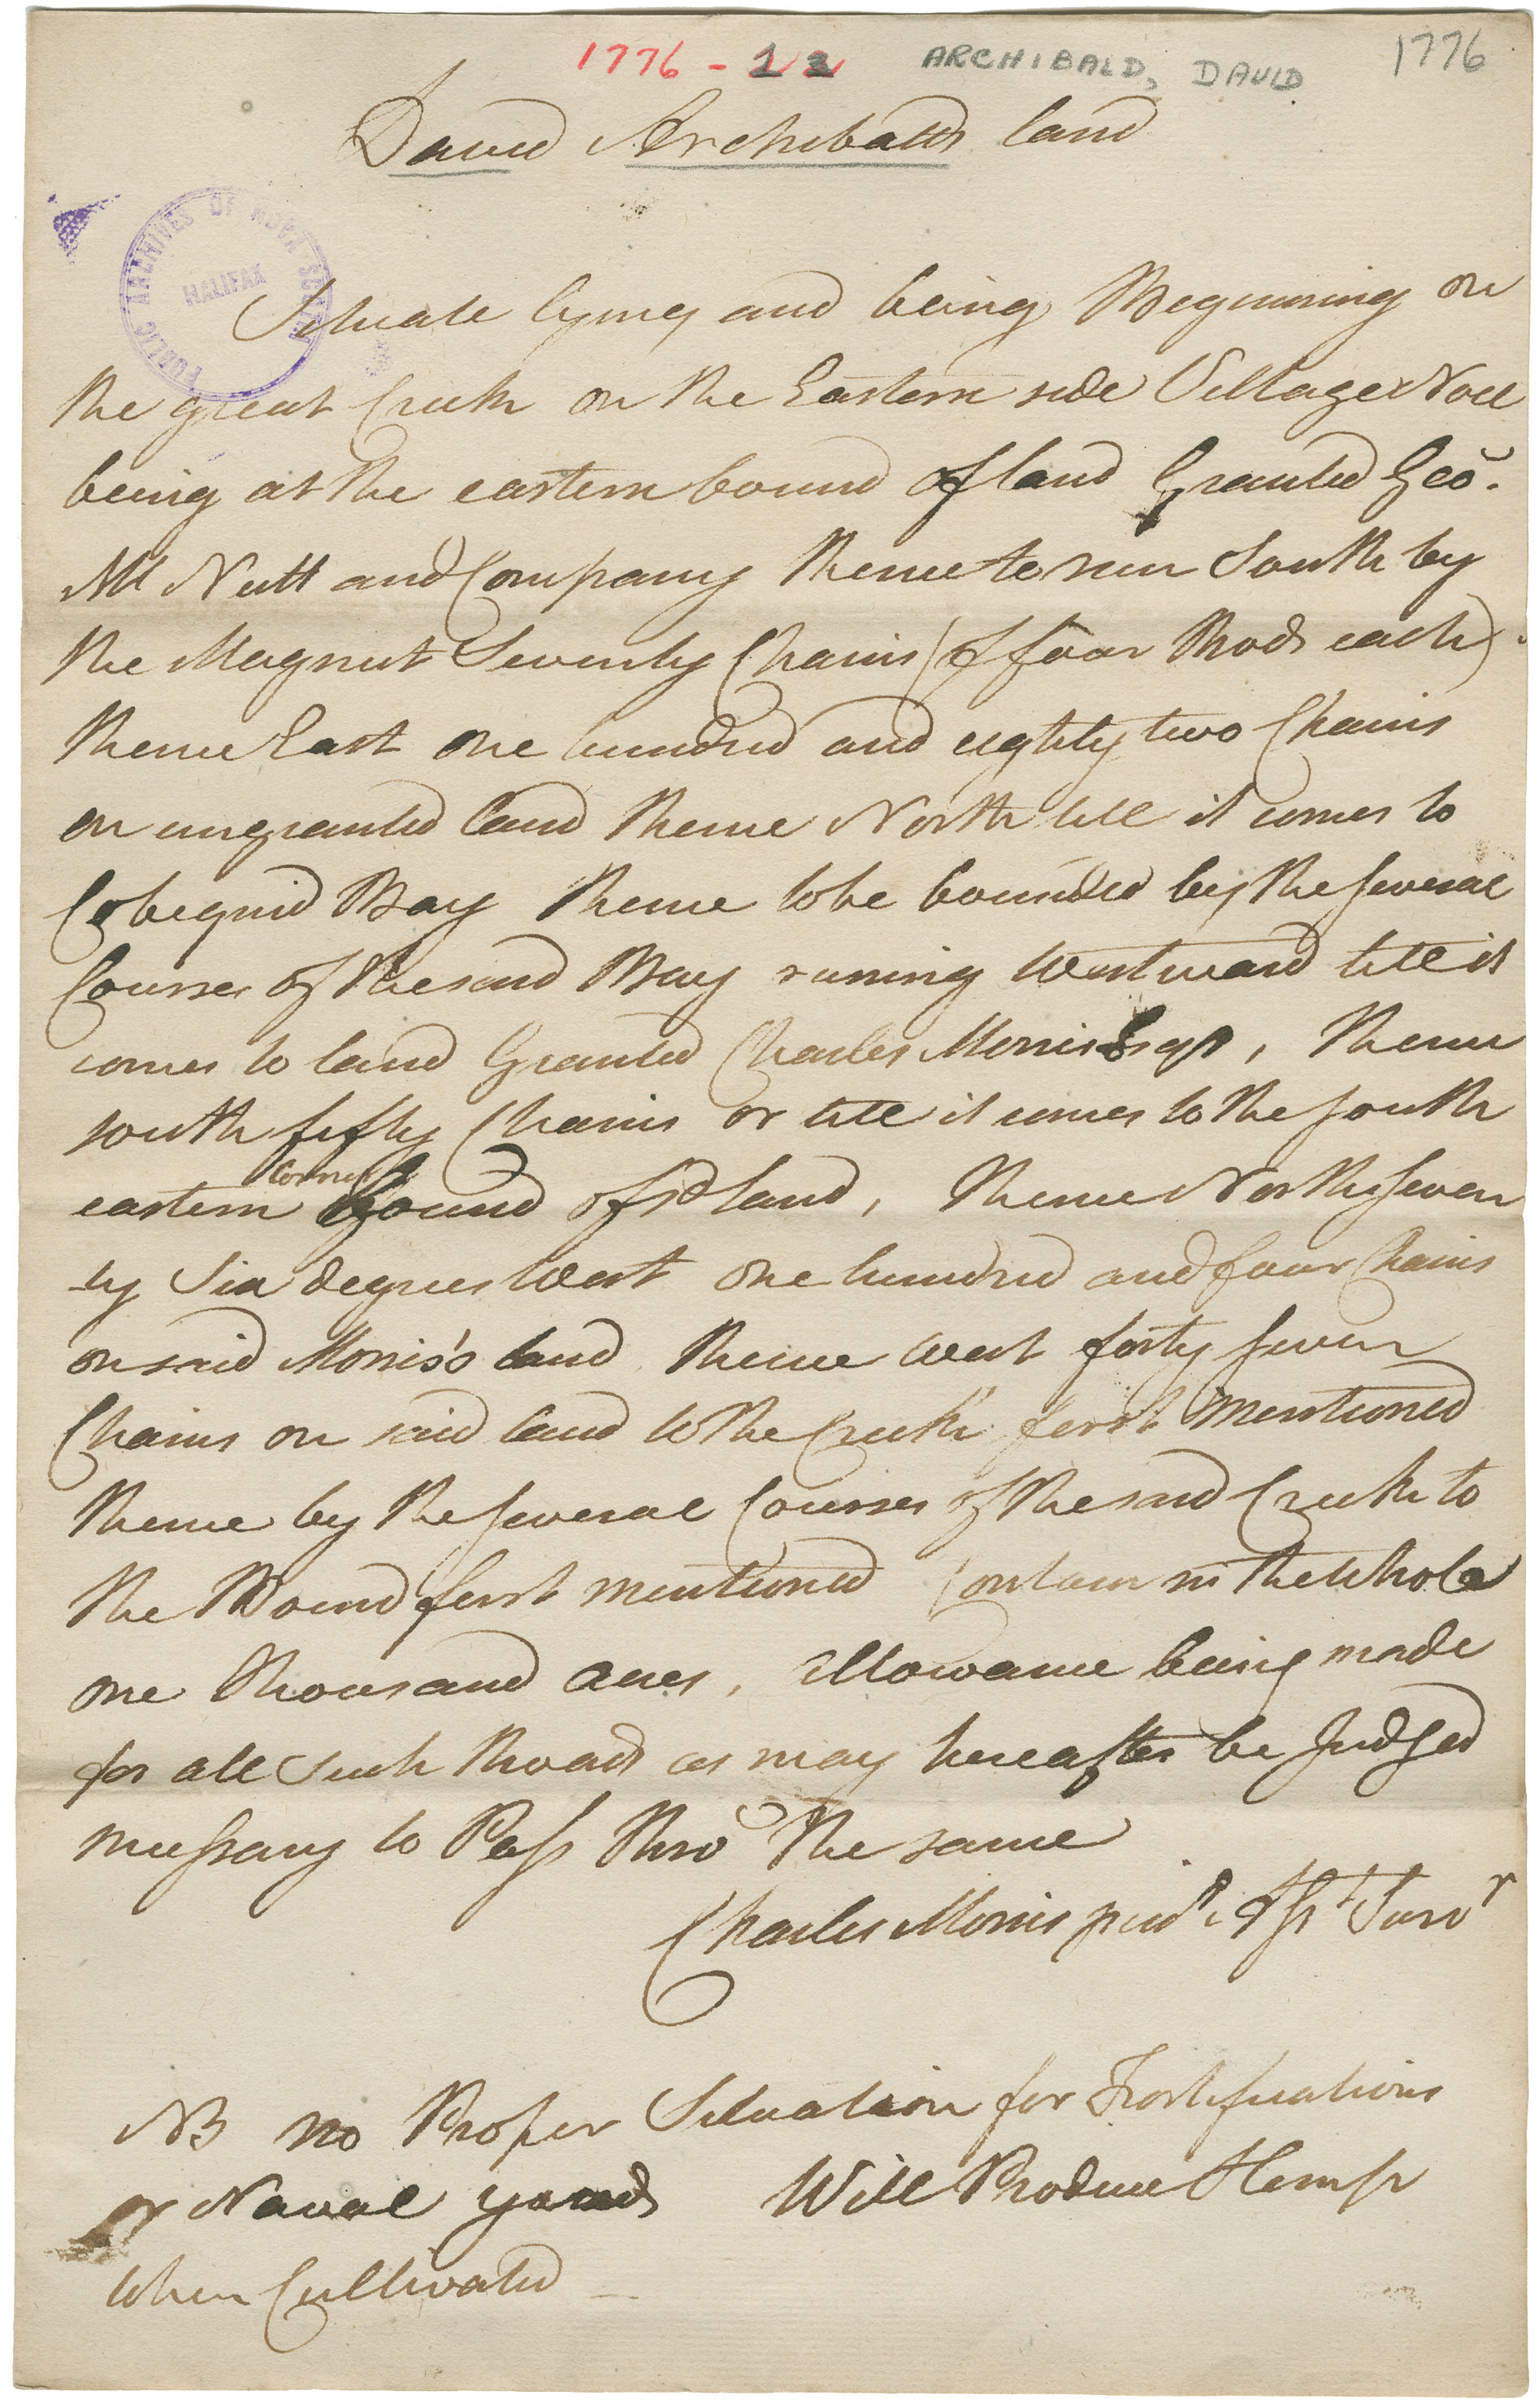 1776 - 12 ARCHIBALD, DAVID 1776
David Archibalds land
PUBLIC ARCHIVES OF NOVA SCOTIA
HALIFAX
Situate lying and being Beginning on
the great Creek on the Eastern side Village Noel
being at the eastern bound of land Granted Geo.
Mc Nutt and Company thence to run South by
the Magnet Seventy Chains (of four Rods each)
thence East one hundred and eighty two Chains
on ungranted land thence North till it comes to
Cobequid Bay thence to be bounded by the several
Courses of the said Bay runing Westward till it
comes to land Granted Charles Morris Esqr, thence
south fifty Chains or till it comes to the south
corner
eastern bound of sd land, thence North seven
-ty Six degrees West one hundred and four Chains
on said Morris's land thence west forty seven
Chains on said land to the Creek first mentioned
thence by the several Courses of the said Creek to
the Bound first mentioned Contain in the whole
one thousand acres, allowance being made
for all such Roads as may hereafter be Judged
necessary to Pass thro the same
Charles Morris junr Asst Survr
NB no Proper Situation for Fortifications
or Naval yards Will Produce Hemp
When Cultivated